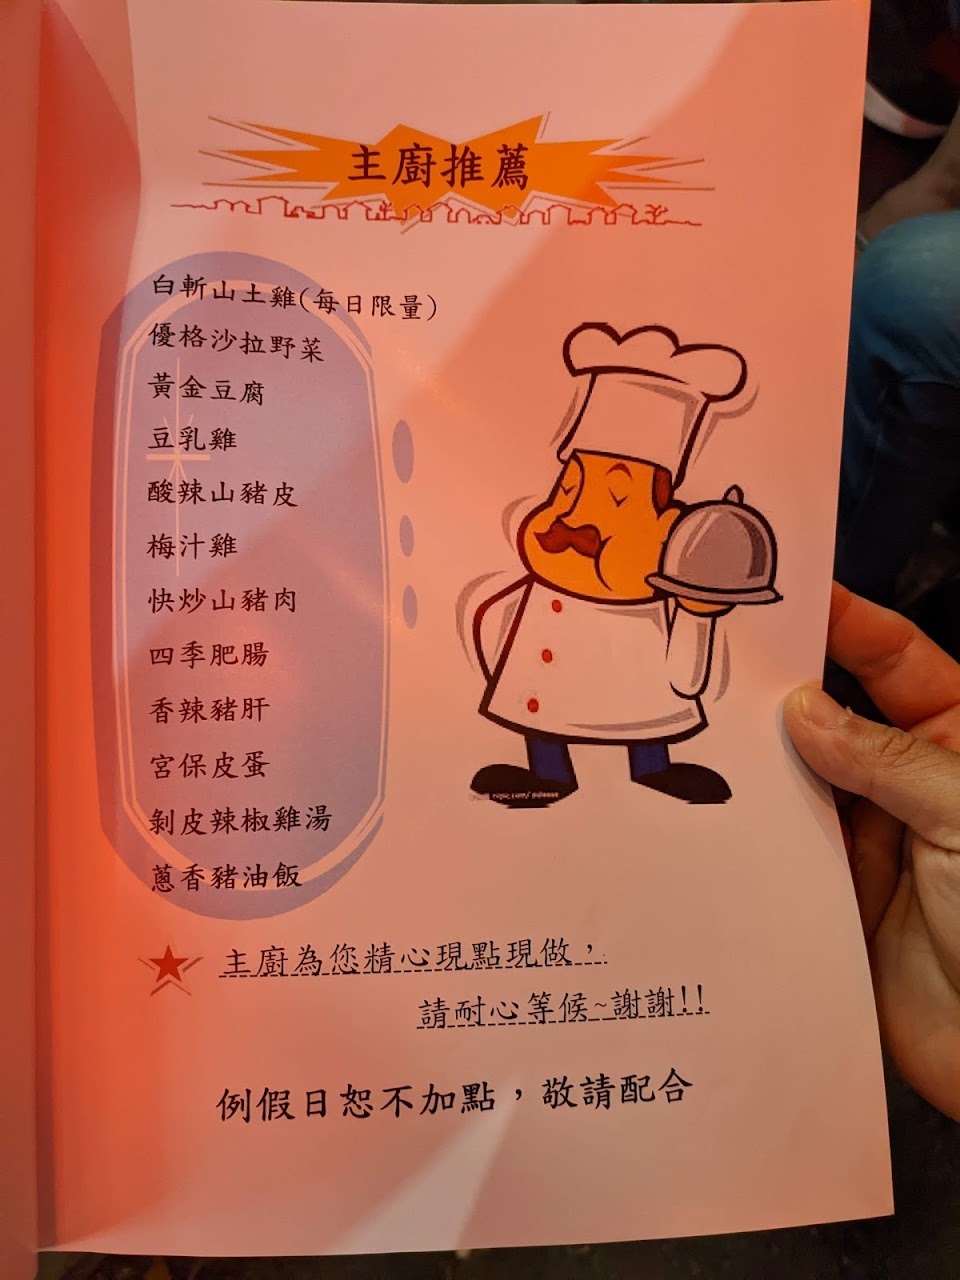 主廚推薦
白斬山土雞(每日限量)
優格沙拉野菜
黃金豆腐
豆乳雞
酸辣山豬皮
梅汁雞
快炒山豬肉
四季肥腸
香辣豬肝
宮保皮蛋
剝皮辣椒雞湯
蔥香豬油飯
主廚為您精心現點現做，
請耐心等候~謝謝!!
例假日恕不加點，敬請配合